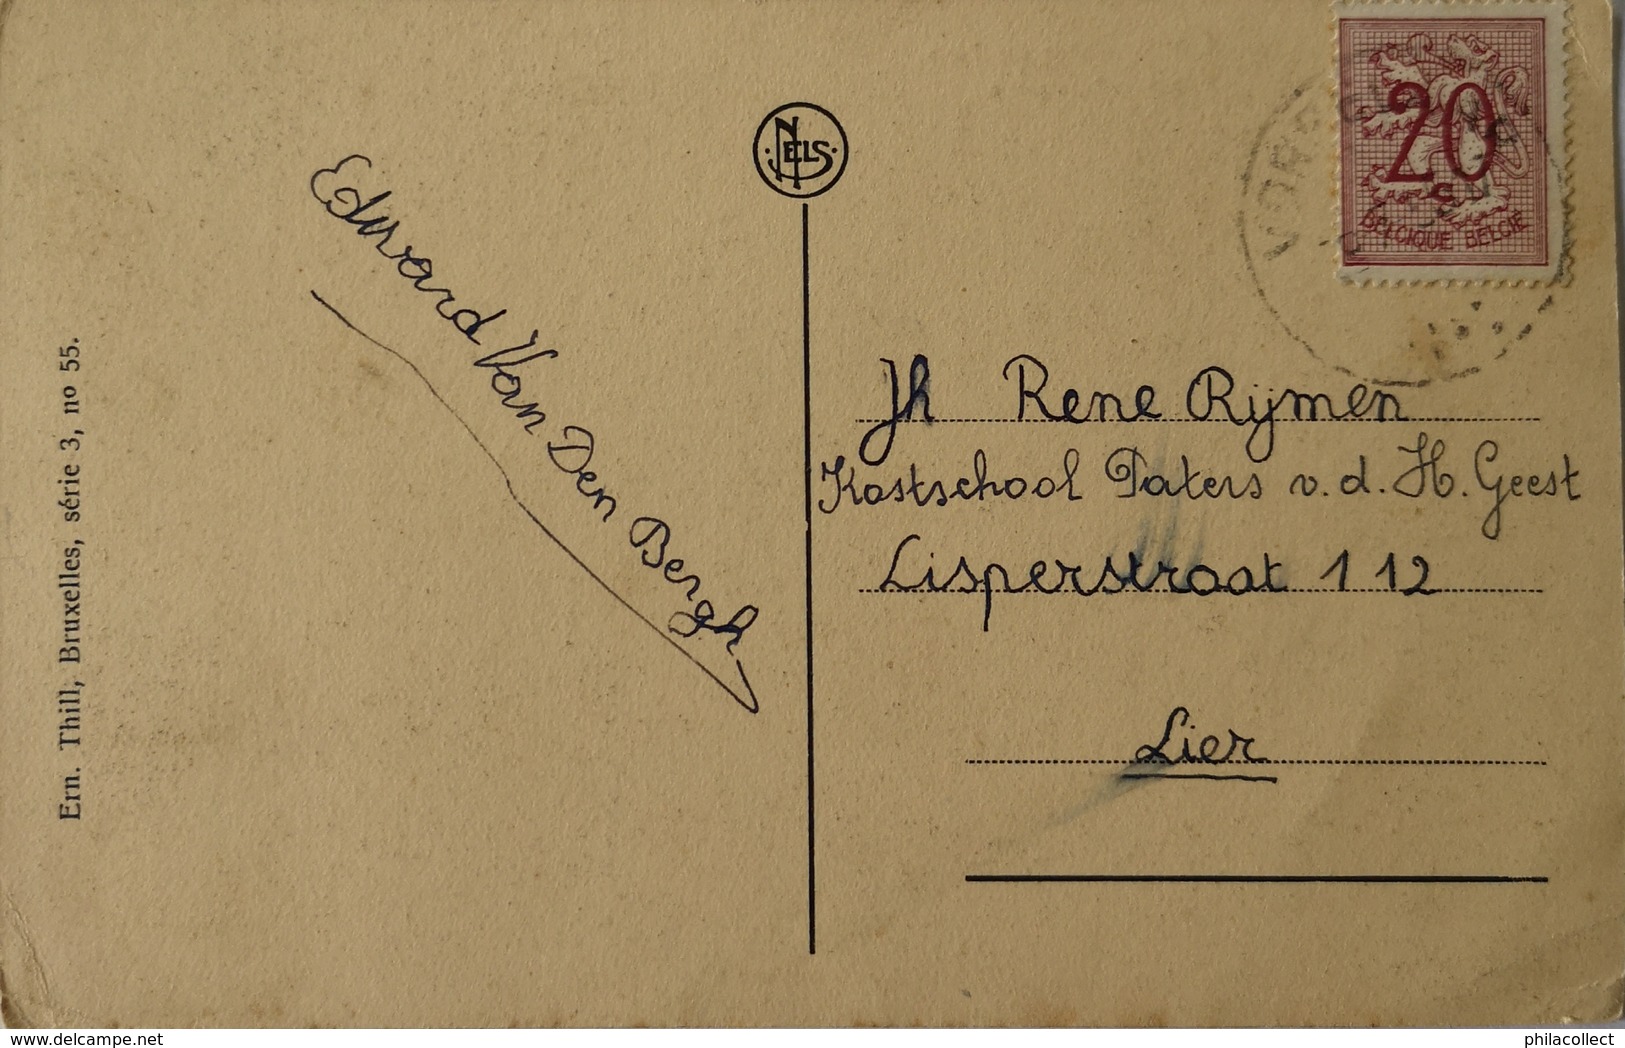 Ern. Thill, Bruxelles, série 3, no 55.
Edward Van Den Bergh
NELS
20
c
BELGIQUE BELGIË
Jh Rene Rijmen
Kostschool Paters v.d. H. Geest
Lisperstraat 112
Lier
www.delcampe.net
philacollect